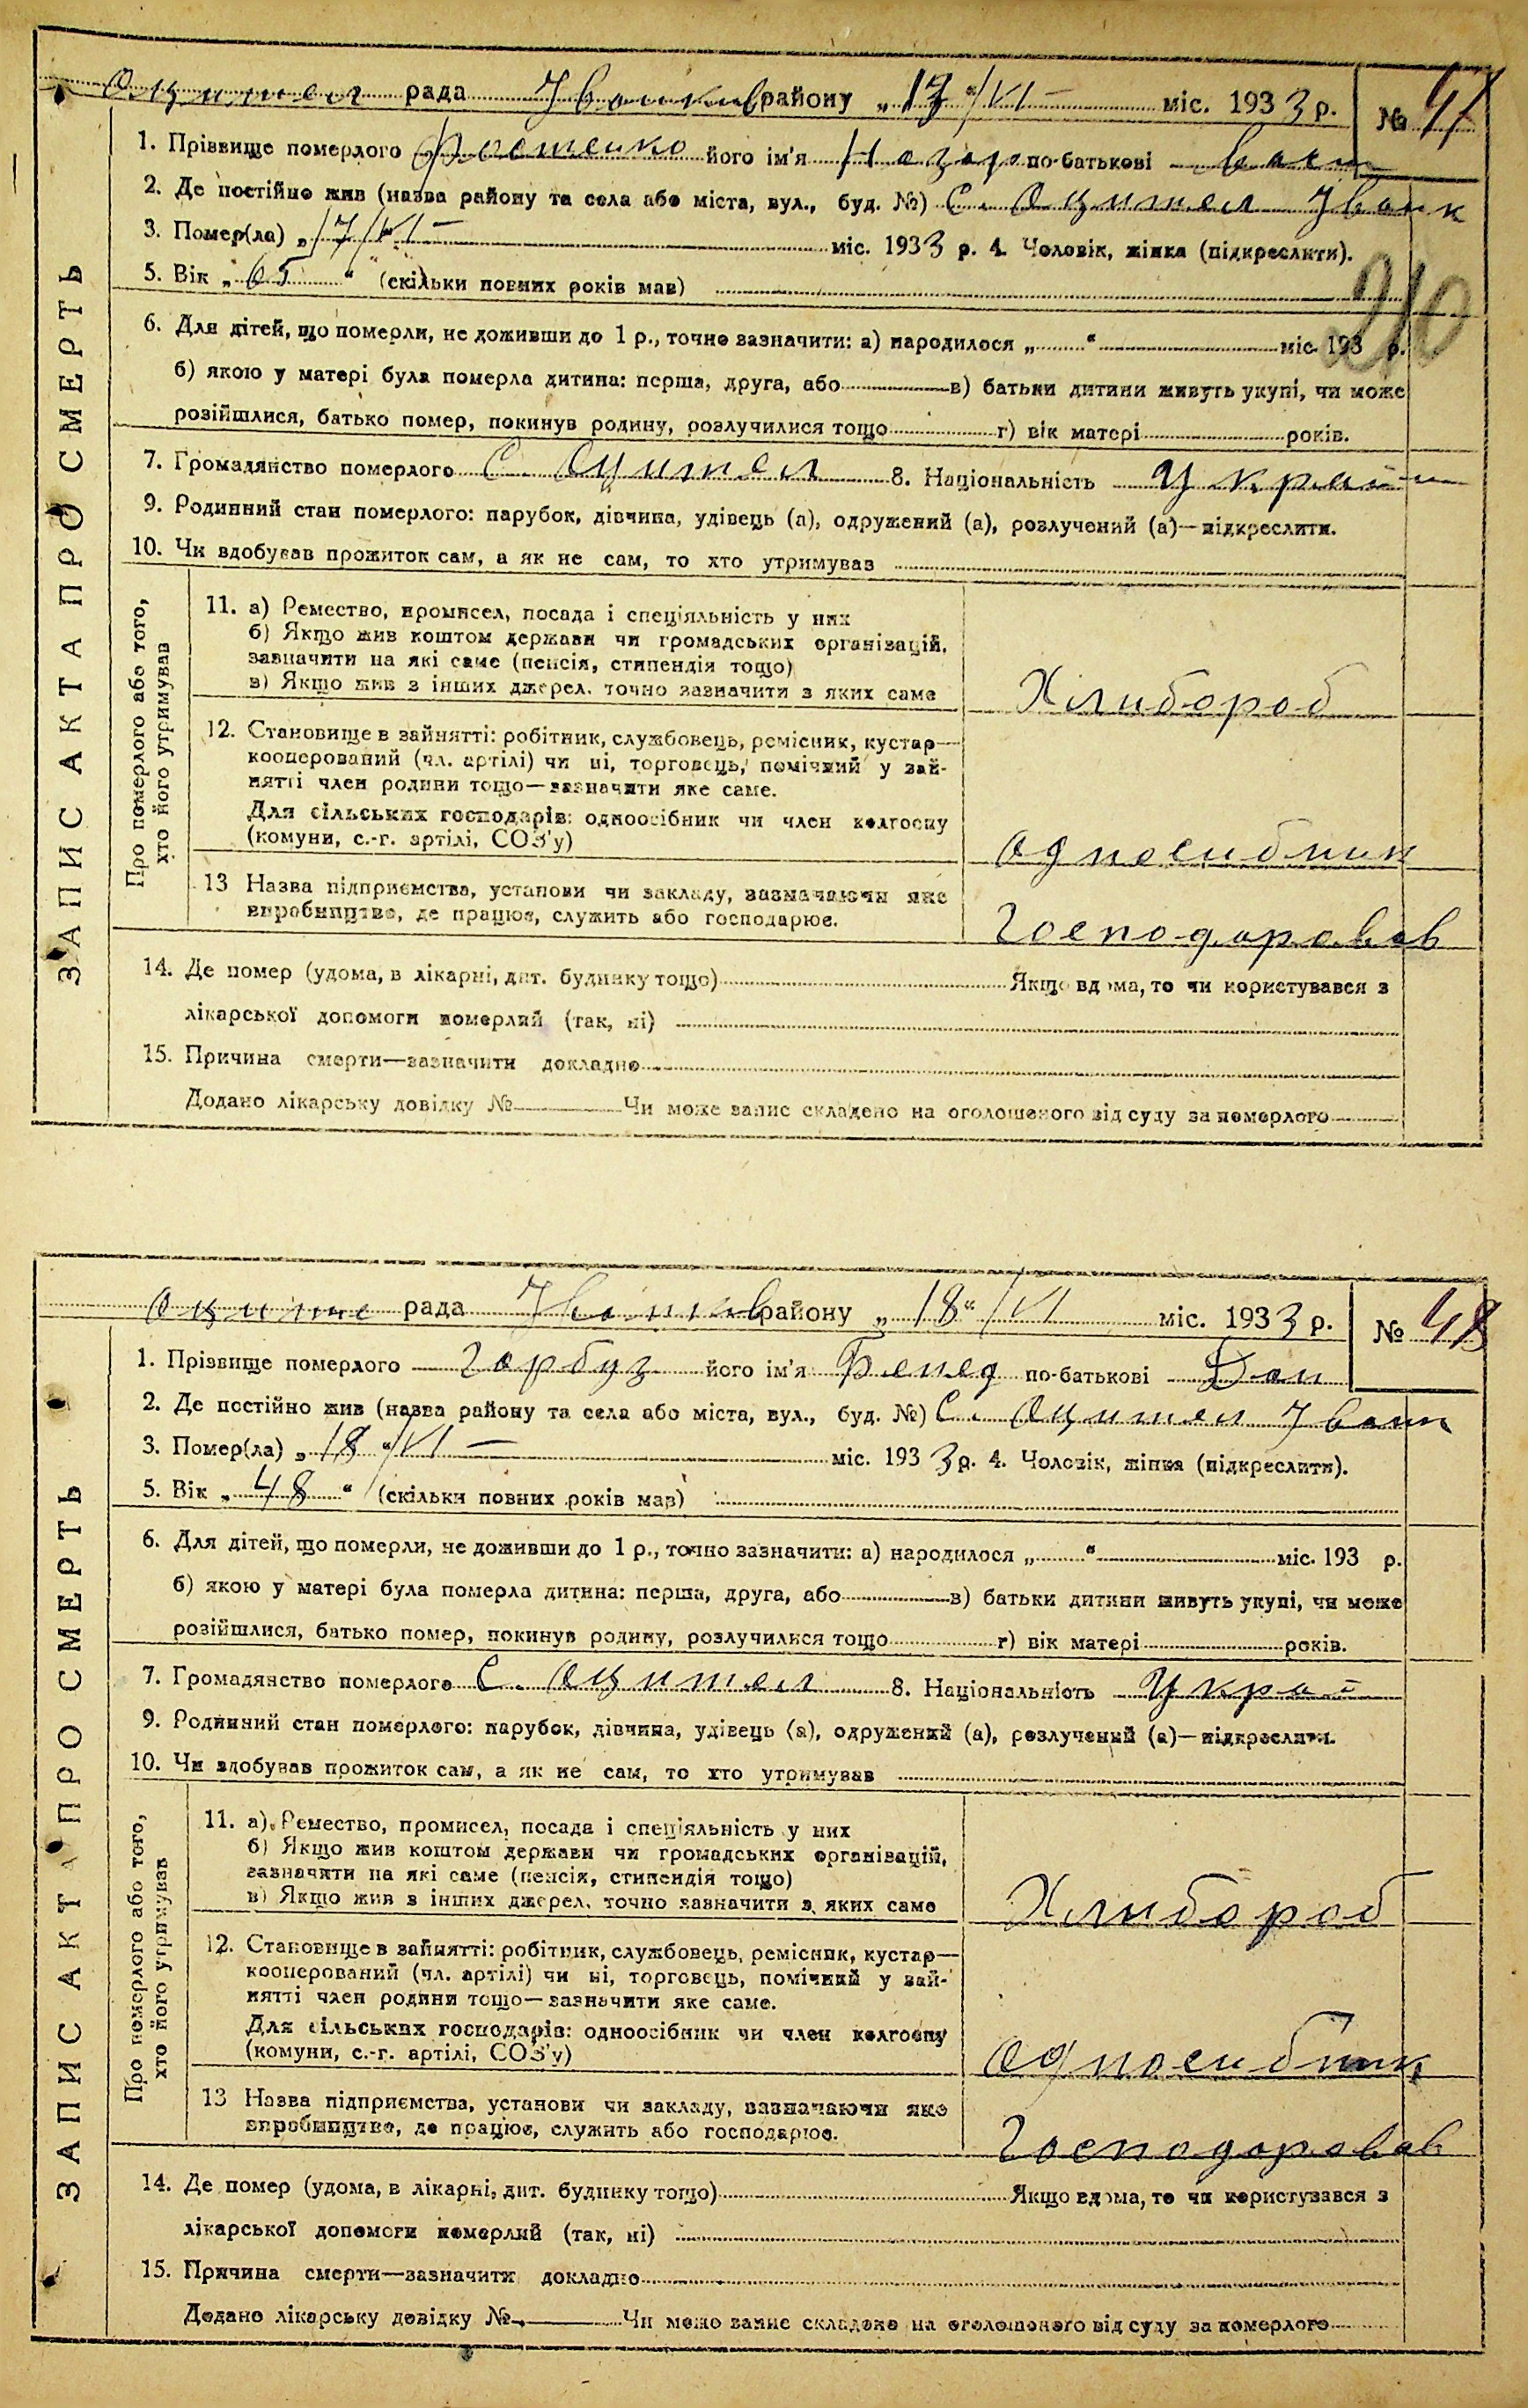 Оцител рада Іванків району „17“/VI – міс. 1933 р. № 47
1. Прізвище померлого Фостенко його ім'я Назар по-батькові
2. Де постійно жив (назва району та села або міста, вул., буд. №) С. Оцител Іванк
3. Помер(ла) „17/VI – міс. 1933 р. 4. Чоловік, жінка (підкреслити).
5. Вік „65“ (скільки повних років мав)
210
6. Для дітей, що померли, не доживши до 1 р., точно зазначити: а) народилося „ “ міс. 193 р.
б) якою у матері була померла дитина: перша, друга, або в) батьки дитини живуть укупі, чи може
розійшлися, батько помер, покинув родину, розлучилися тощо г) вік матері років.
7. Громадянство померлого С. Оцител 8. Національність Україн
9. Родинний стан померлого: парубок, дівчина, удівець (а), одружений (а), розлучений (а)—підкреслити.
10. Чи вдобував прожиток сам, а як не сам, то хто утримував
ЗАПИС АКТА ПРО СМЕРТЬ
Про померлого або того,
хто його утримував
11. а) Ремество, промисел, посада і спеціяльність у них
б) Якщо жив коштом держави чи громадських організацій,
зазначити на які саме (пенсія, стипендія тощо)
в) Якщо жив з інших джерел, точно зазначити з яких саме
Хлибороб
12. Становище в зайнятті: робітник, службовець, ремісник, кустар—
кооперований (чл. артілі) чи ні, торговець, помічний у зай-
нятті член родини тощо—зазначити яке саме.
Для сільських господарів: одноосібник чи член колгоспу
(комуни, с.-г. артілі, СОЗ'у)
односибник
13 Назва підприємства, установи чи закладу, зазначаючи яке
виробництво, де працює, служить або господарює.
Господаровав
14. Де помер (удома, в лікарні, дит. будинку тощо) Якщо вдома, то чи користувався з
лікарської допомоги померлий (так, ні)
15. Причина смерти—зазначити докладно
Додано лікарську довідку № Чи може запис складено на оголошеного від суду за померлого
Оците рада Іванків району „18“/VI міс. 1933 р. № 48
1. Прізвище померлого Гарбуз його ім'я Бенед по-батькові Дан
2. Де постійно жив (назва району та села або міста, вул., буд. №) С. Оцител Іванк
3. Помер(ла) „18“/VI – міс. 1933 р. 4. Чоловік, жінка (підкреслити).
5. Вік „48“ (скільки повних років мав)
6. Для дітей, що померли, не доживши до 1 р., точно зазначити: а) народилося „ “ міс. 193 р.
б) якою у матері була померла дитина: перша, друга, або в) батьки дитини живуть укупі, чи може
розійшлися, батько помер, покинув родину, розлучилися тощо г) вік матері років.
7. Громадянство померлого С. Оцител 8. Національність Украї
9. Родинний стан померлого: парубок, дівчина, удівець (а), одружений (а), розлучений (а)—підкреслити.
10. Чи вдобував прожиток сам, а як не сам, то хто утримував
ЗАПИС АКТА ПРО СМЕРТЬ
Про померлого або того,
хто його утримував
11. а) Ремество, промисел, посада і спеціяльність у них
б) Якщо жив коштом держави чи громадських організацій,
зазначити на які саме (пенсія, стипендія тощо)
в) Якщо жив з інших джерел, точно зазначити з яких саме
Хлибороб
12. Становище в зайнятті: робітник, службовець, ремісник, кустар—
кооперований (чл. артілі) чи ні, торговець, помічний у зай-
нятті член родини тощо—зазначити яке саме.
Для сільських господарів: одноосібник чи член колгоспу
(комуни, с.-г. артілі, СОЗ'у)
односибник
13 Назва підприємства, установи чи закладу, зазначаючи яке
виробництво, де працює, служить або господарює.
Господаровав
14. Де помер (удома, в лікарні, дит. будинку тощо) Якщо вдома, то чи користувався з
лікарської допомоги померлий (так, ні)
15. Причина смерти—зазначити докладно
Додано лікарську довідку № Чи може запис складено на оголошеного від суду за померлого